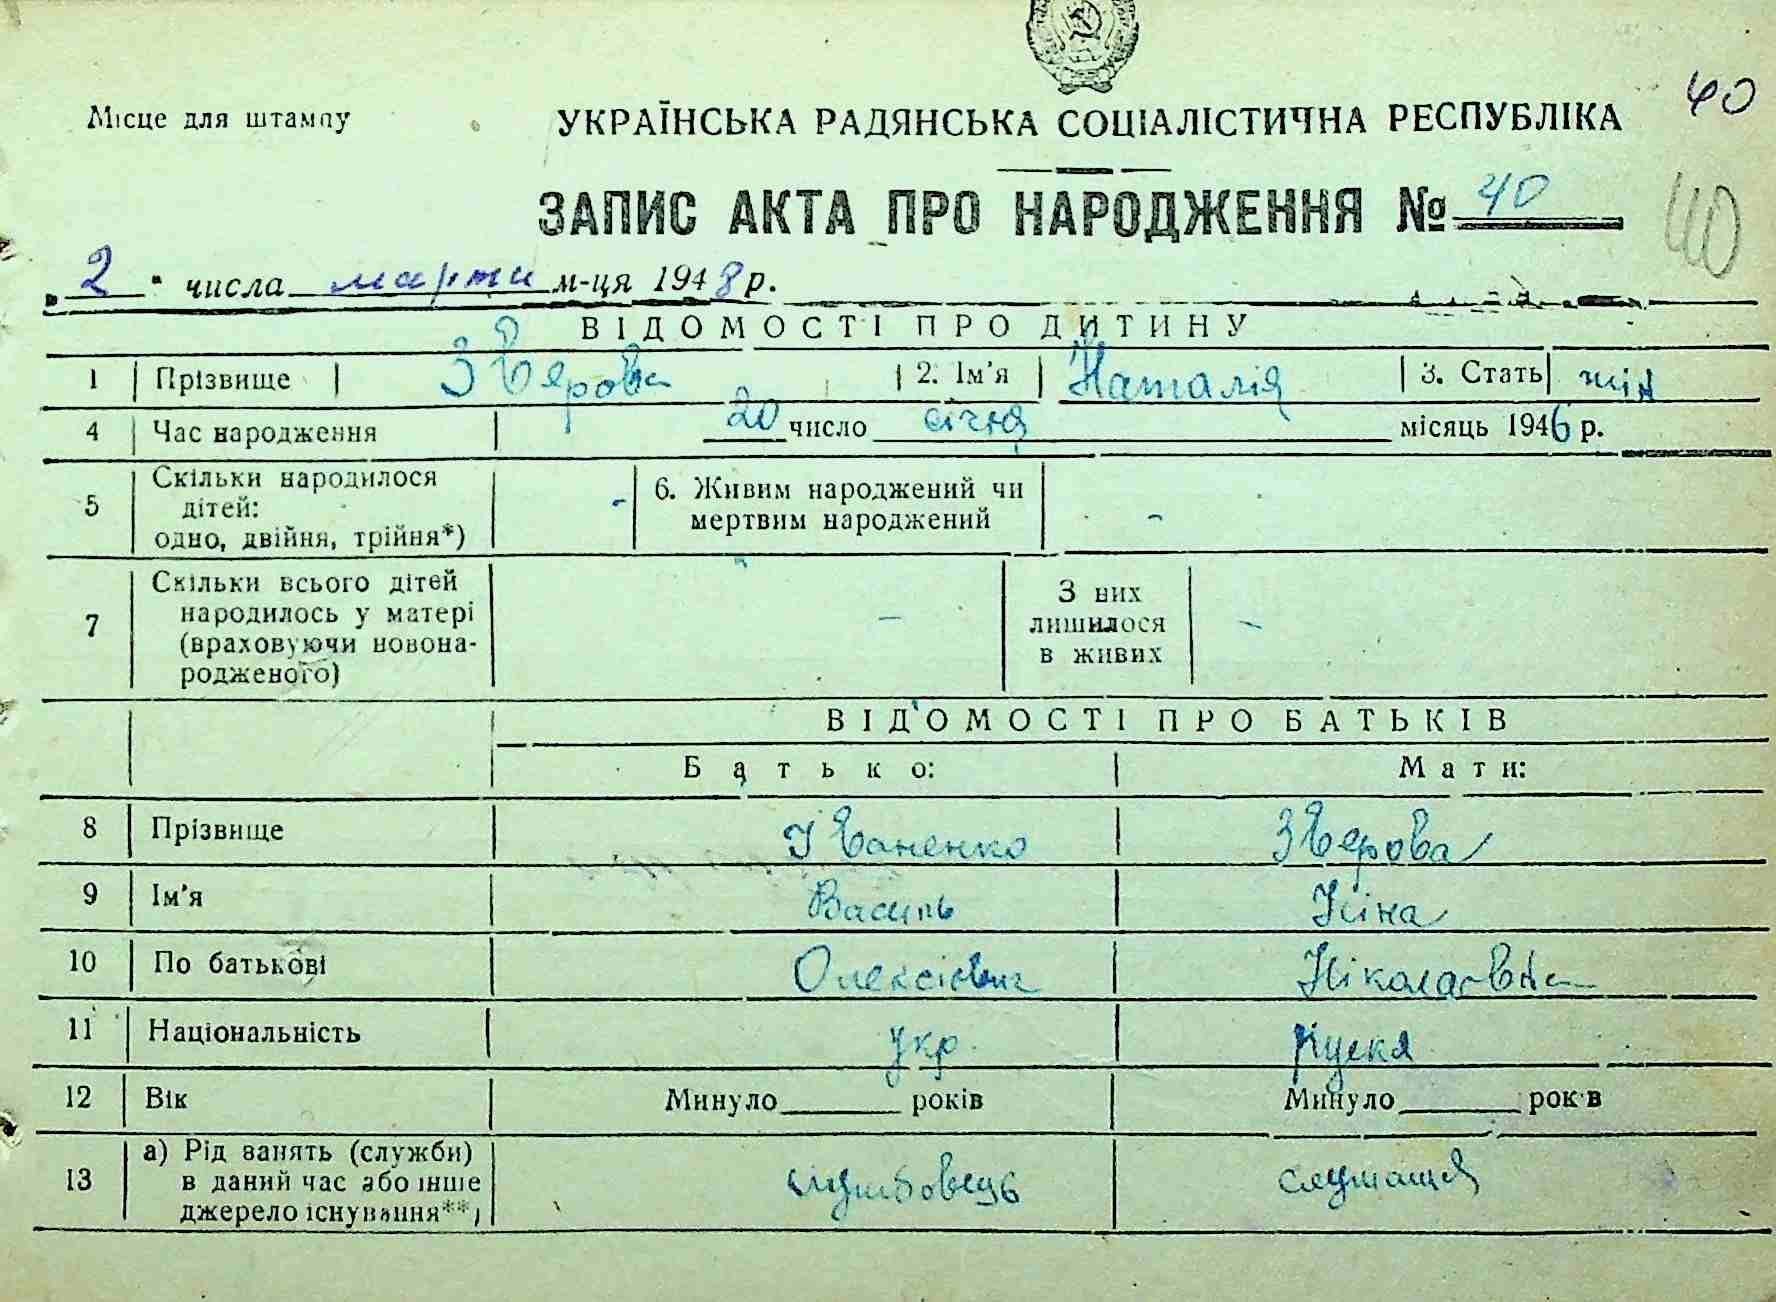 40
Місце для штампу
УКРАЇНСЬКА РАДЯНСЬКА СОЦІАЛІСТИЧНА РЕСПУБЛІКА
ЗАПИС АКТА ПРО НАРОДЖЕННЯ № 40
40
„2" числа марта м-ця 1948 р.
ВІДОМОСТІ ПРО ДИТИНУ
1 Прізвище Зверова 2. Ім'я Наталія 3. Стать жін
4 Час народження 20 число січня місяць 1946 р.
5 Скільки народилося дітей: одно, двійня, трійня*) - 6. Живим народжений чи мертвим народжений -
7 Скільки всього дітей народилось у матері (враховуючи новонародженого) - З них лишилося в живих -
ВІДОМОСТІ ПРО БАТЬКІВ
Батько: Мати:
8 Прізвище Іваненко Зверова
9 Ім'я Василь Ніна
10 По батькові Олексієвич Ніколаєвна
11 Національність укр. руская
12 Вік Минуло рокiв Минуло рок в
13 а) Рід занять (служби) в даний час або інше джерело існування**) службовець служащая